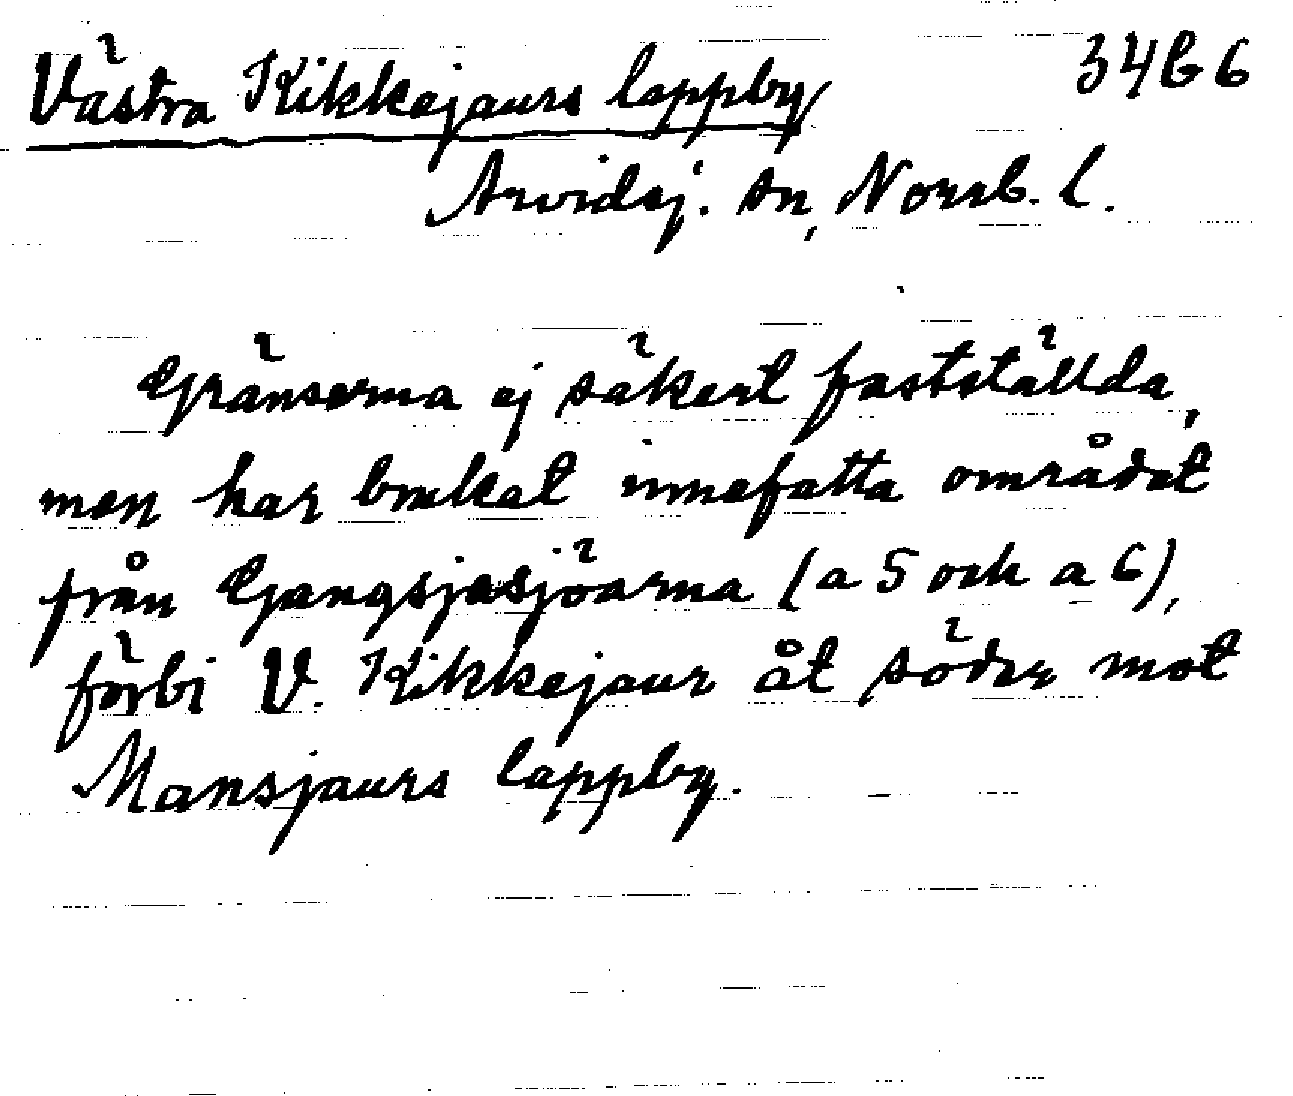 Västra Kikkejaurs lappby 34b6
Arvidsj. sn, Norrb. l.
Gränserna ej säkert fastställda,
men har brukat innefatta området
från Gangsjasjöarna (a 5 och a 6),
förbi V. Kikkejaur åt söder mot
Mansjaurs lappby.